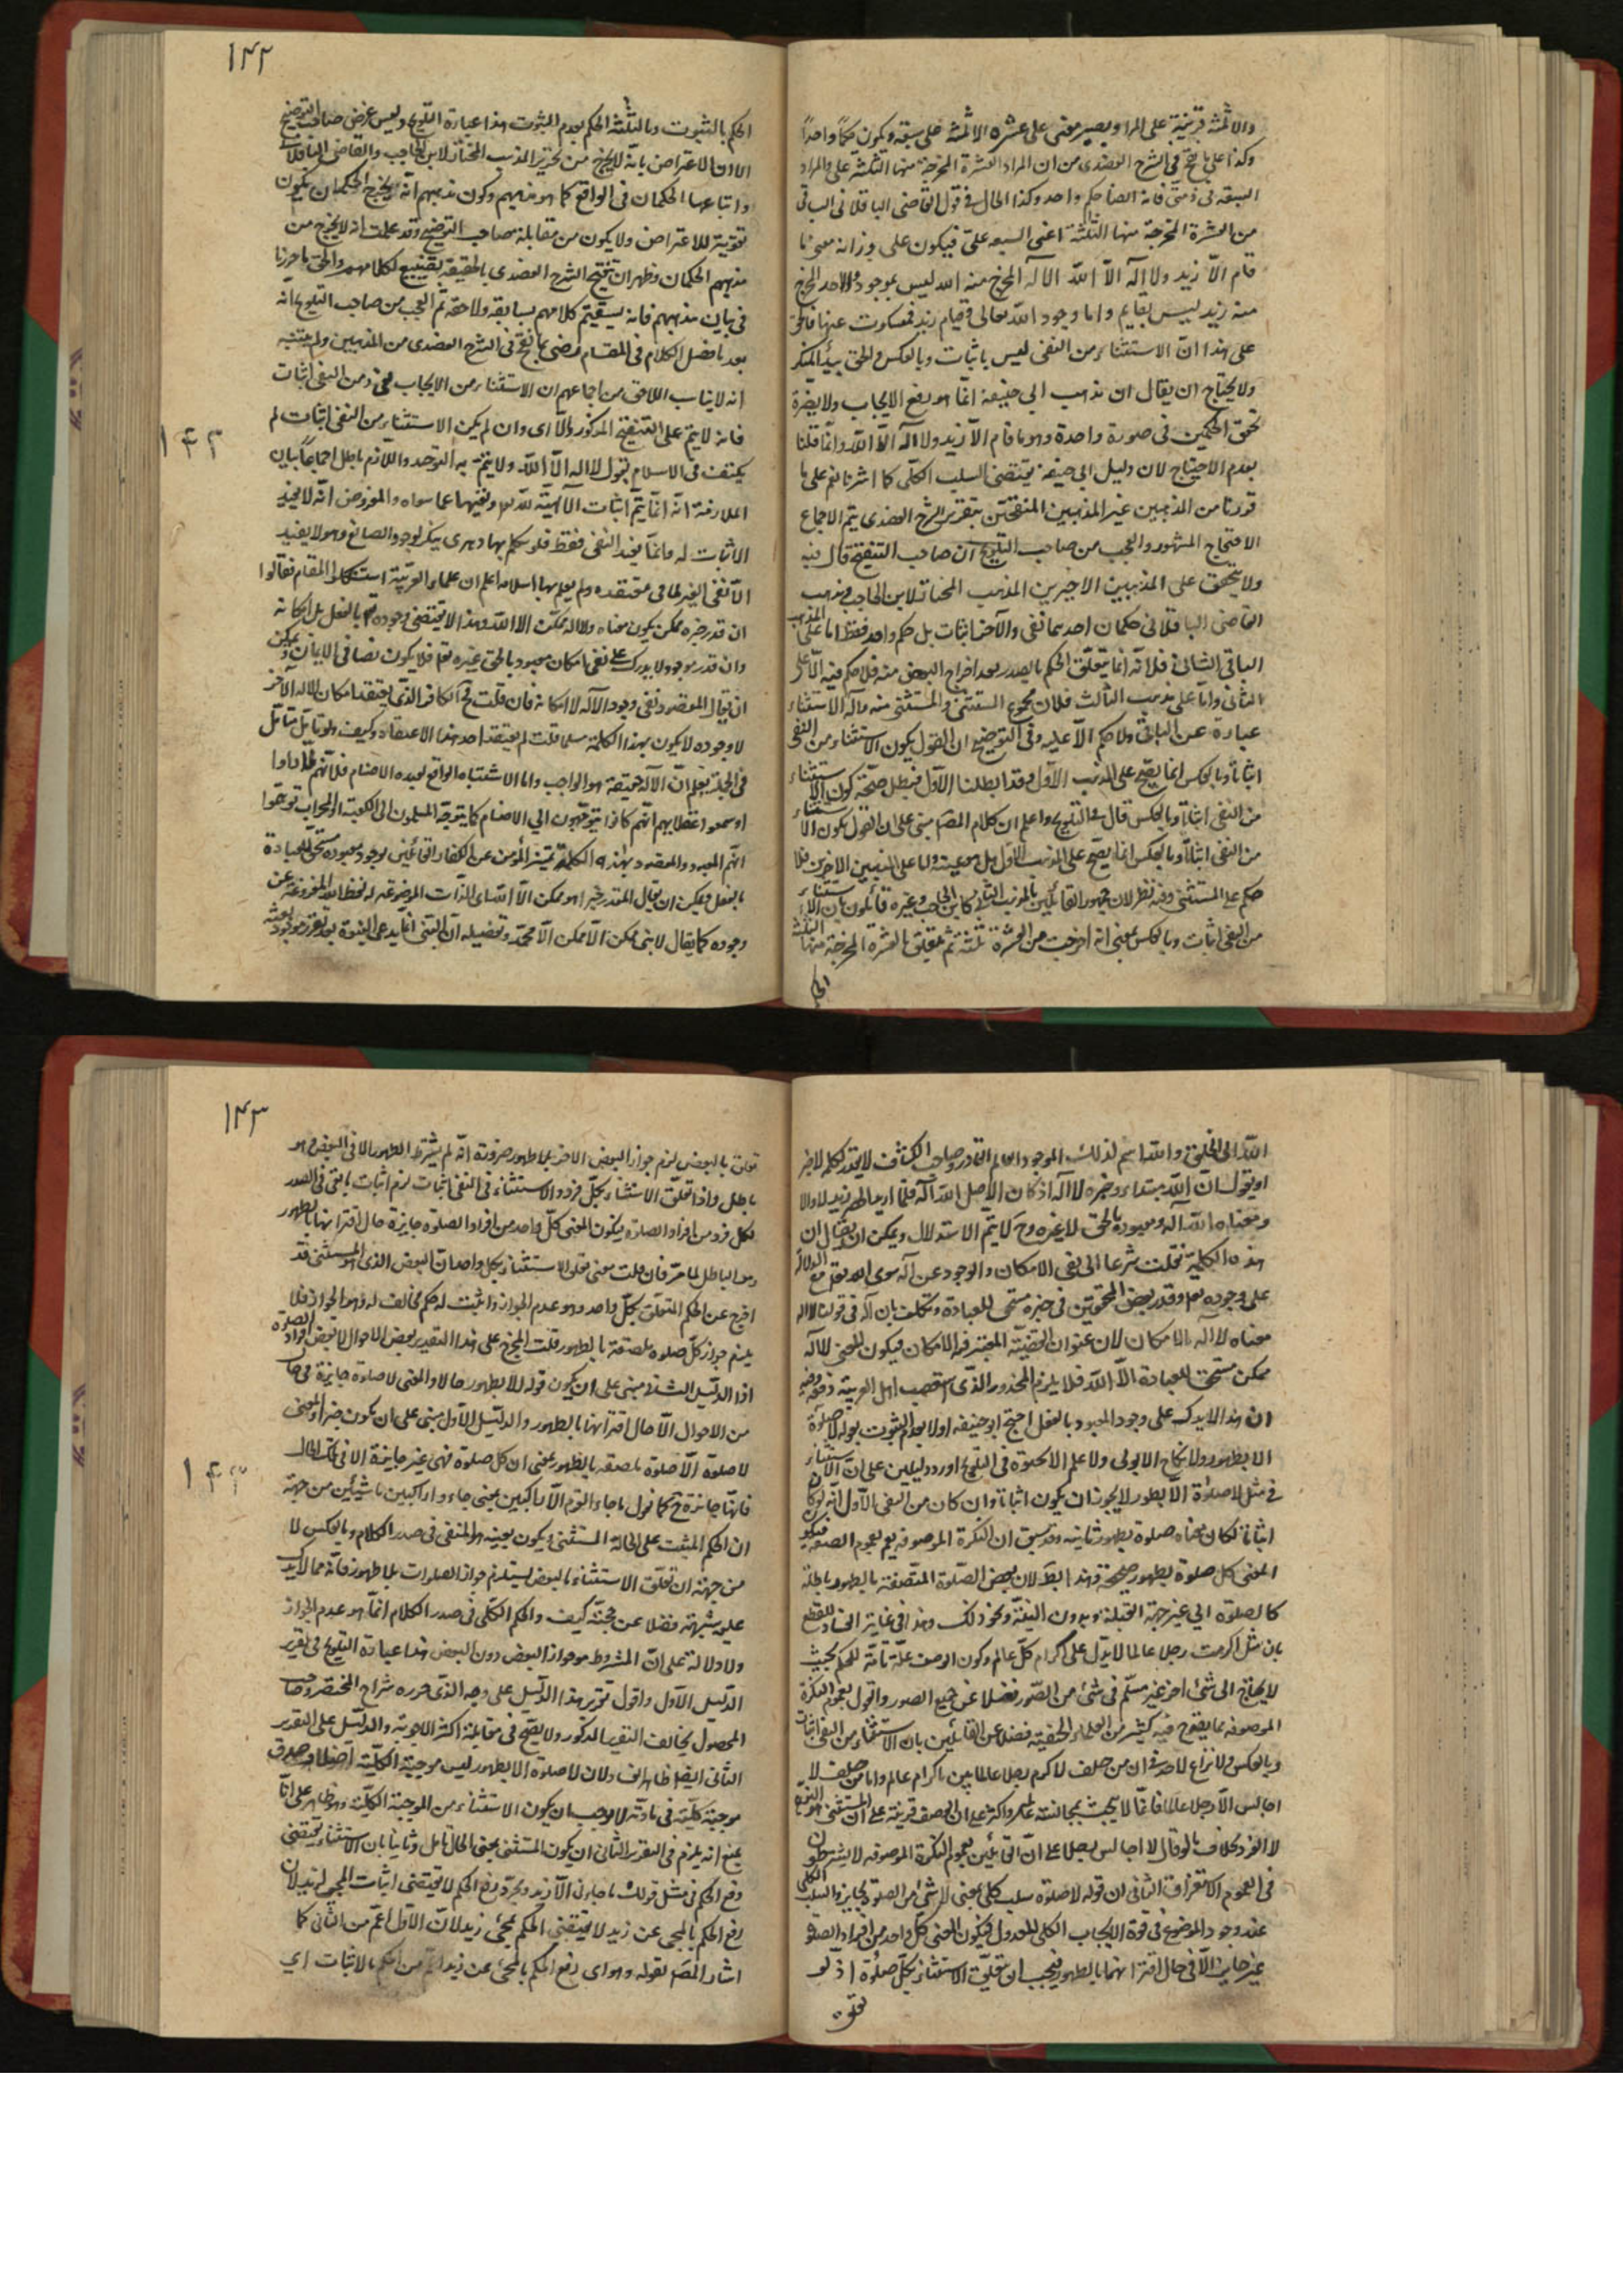 والا ثلثة قرينة على المراد ويصير معنى على عشرة الا ثلثة على سبعة ويكون حكما واحدا
وكذا على ما نقح في الشرح العضدي من ان المراد العشرة المخرجة منها الثلثة على والمراد
السبعة في ذمتي فانه ايضا حكم واحد وكذا الحال في قول القاضي الباقلاني الباقي
من العشرة المخرجة منها الثلثة اعني السبعة على فيكون على وزانه معنى ما
قام الا زيد ولا اله الا الله الاله المخرج منه الله ليس بموجود والاحد المخرج
منه زيد ليس بقايم واما وجود الله تعالى وقيام زيد فمسكوت عنها
على هذا ان الاستثناء من النفي ليس باثبات وبالعكس
ولا يحتاج ان يقال ان مذهب ابي حنيفة انما هو رفع الايجاب ولا يضره
تحقق الحكمين في صورة واحدة وهو ما قام الا زيد ولا اله الا الله وانما قلنا
بعدم الاحتياج لان دليل ابي حنيفة يقتضي السلب الكلي كما اشرنا نعم على ما
قررنا من المذهبين غير المذهبين المنقحين بتقرير الشرح العضدي يتم الاجماع
الاحتجاج المشهور والعجب من صاحب التلويح ان صاحب التنقيح قال فيه
ولا يتحقق على المذهبين الاخيرين المذهب المختار لابن الحاجب ومذهب
القاضي الباقلاني حكمان احدهما نفي والآخر اثبات بل حكم واحد فقط اما على المذهب
الباقي الثاني فلانه انما يتعلق الحكم بالصدر بعد اخراج البعض منه فلا حكم فيه الا على
الثاني واما على مذهب الثالث فلان مجموع المستثنى والمستثنى منه وآلة الاستثناء
عبارة عن الباقي ولا حكم الا عليه وفي التوضيح ان القول بكون الاستثناء من النفي
اثباتا وبالعكس انما يصح على المذهب الاول وقد ابطلنا الاول فبطل صحة كون الاستثناء
من النفي اثباتا وبالعكس قال في التلويح واعلم ان كلام المص مبني على ان القول بكون الاستثناء
من النفي اثباتا وبالعكس انما يصح على المذهب الاول بل هو عينه واما على المذهبين الاخيرين فلا
حكم على المستثنى وفيه نظر لان جمهور القائلين بالمذهب الثاني كابن الحاجب وغيره قائلون بان الاستثناء
من النفي اثبات وبالعكس بمعنى انه اخرجت من العشرة ثلثة ثم تعلق بالعشرة المخرجة منها الثلثة
الحكم
١٤٢
الحكم بالثبوت وبالثلثة الحكم بعدم الثبوت هذا عبارة التلويح وليس غرض صاحب التوضيح
الا ان الاعتراض بانه لا يخرج من تحرير المذهب المختار لابن الحاجب والقاضي الباقلاني
واتباعهما الحكمان في الواقع كما هو مذهبهم وكون مذهبهم انه يخرج الحكمان يكون
تقوية للاعتراض ولا يكون من مقابلة صاحب التوضيح وقد علمت انه لا يخرج من
مذهبهم الحكمان وظهر ان تنقيح الشرح العضدي بالحقيقة تضييع لكلامهم والحق ما حررنا
في بيان مذهبهم فانه يستقيم كلامهم بسابقه ولاحقه ثم العجب من صاحب التلويح انه
بعد ما فصل الكلام في المقام رضي بما نقح في الشرح العضدي من المذهبين ولم يتنبه
انه لا يناسب اللاحق من اجماعهم ان الاستثناء من الايجاب نفي ومن النفي اثبات
فانه لا يتم على التنقيح المذكور والا اي وان لم يكن الاستثناء من النفي اثبات لم
يكتف في الاسلام بقول لا اله الا الله ولا يتم به التوحيد واللازم باطل اجماعا بيان
الملازمة انه انما يتم اثبات الالهية لله تعالى ونفيها عما سواه والمفروض انه لا يفيد
الاثبات له وانما يفيد النفي فقط فلو تكلم بها دهري ينكر لوجود الصانع وهو لا يفيد
الا نفي الغير لما في معتقده ولم يعلم بها اسلامه اعلم ان علماء العربية استشكلوا المقام فقالوا
ان قدر خبره ممكن يكون معناه ولا اله ممكن الا الله وهذا لا يقتضي وجوده بالفعل بل امكانه
وان قدر موجود لا يدل على نفي امكان معبود بالحق غيره تعالى فلا يكون نصا في الايمان ويمكن
ان يقال المقصود نفي وجود الاله لا امكانه فان قلت الكافر الذي يعتقد امكان اله الآخر
لا وجوده لا يكون بهذا الكلمة مسلما قلت لم يعتقد احد هذا الاعتقاد وكيف
في الجملة يعلم ان الاله حقيقة هو الواجب واما الاشتباه الواقع لعبدة الاصنام فلانهم لما راوا
او سمعوا عقلاءهم انهم كانوا يتوجهون الى الاصنام كما يتوجه المسلمون الى الكعبة او المحراب توهموا
انهم المعبود والمقصود بهذه الكلمة تميز المؤمن عن الكفار القائلين بوجود معبود مستحق للعبادة
بالفعل ويمكن ان يقال المقدر خبرا هو ممكن الا الله اي الذات الموضوعة له لفظ الله المفروغ عن
وجوده كما يقال لا نبي ممكن الا ممكن الا محمد وتفصيله ان النبي انما يدعي النبوة بعد تقرر موجود
١٤٢
الله الى الخلق والله اسم لذلك الموجود العالم القادر وصاحب الكشاف لا يقدر لكلمة لا خبر
او يقول ان الله مبتداء وخبره لا اله اذ كان الاصل الله اله فلما اريد الحصر زيد لا والا
ومعناه الله اله ومعبود بالحق لا غيره وح لا يتم الاستدلال ويمكن ان يقال ان
هذه الكلمة نقلت شرعا الى نفي الامكان والوجود عن اله سوى الله تعالى مع الدلالة
على وجوده تعالى وقدر بعض المحققين في خبره مستحق للعبادة وتكلف بان اله في قولنا لا اله
معناه لا اله بالامكان لان عنوان القضية المعتبر فيه الامكان فيكون المعنى لا اله
ممكن مستحق للعبادة الا الله فلا يلزم المحذور الذي استصعب اهل العربية دفعه وفيه
ان هذا لا يدل على وجود المعبود بالفعل احتج ابو حنيفة اولا بعدم الثبوت بقوله لا صلوة
الا بطهور ولا نكاح الا بولي ولا علم الا بحيوة في التلويح اورد دليلين على ان الاستثناء
في مثل لا صلوة الا بطهور لا يجوز ان يكون اثباتا وان كان من النفي الاول انه لو كان
اثباتا لكان معناه صلوة بطهور ثابتة وقد سبق ان النكرة الموصوفة يعم لعموم الصفة فيكون
المعنى كل صلوة بطهور صحيحة وهذا باطل لان بعض الصلوة المتصفة بالطهور باطلة
كالصلوة الى غير جهة القبلة وبدون النية ونحو ذلك وهذا في غاية الفساد للقطع
بان مثل اكرمت رجلا عالما لا يدل على اكرام كل عالم وكون الوصف علة تامة للحكم بحيث
لا يحتاج الى شيء اخر غير مسلم في شيء من الصور فضلا عن جميع الصور والقول بعموم النكرة
الموصوفة مما يقدح فيه كثير من العلماء الحنفية فضلا عن القائلين بان الاستثناء من النفي اثبات
وبالعكس ولا نزاع لاحد في ان من حلف لاكرم رجلا عالما يبر باكرام عالم واما من حلف لا
اجالس الا رجلا عالما فانما لا يحنث بمجالسة عالم واكثر على ان الوصف قرينة على ان المستثنى هو النوع
لا الفرد بخلاف ما لو قال لا اجالس الا رجلا على ان القائلين بعموم النكرة الموصوفة لا يشترطون
في العموم الاستغراق الثاني ان قوله لا صلوة سلب كلي بمعنى لا شيء من الصلوة بجايز والسلب الكلي
عند وجود الموضوع في قوة الايجاب الكلي المعدول فيكون المعنى كل واحد من افراد الصلوة
غير جايز الا في حال اقترانها بالطهور فيجب ان يتعلق الاستثناء بكل صلوة اذ لو
تعلق
١٤٣
تعلق بالبعض لزم جواز البعض الاخر بلا طهور ضرورة انه لم يشترط الطهور الا في البعض وهو
باطل واذا تعلق الاستثناء بكل فرد والاستثناء في النفي اثبات لزم اثبات ما نفي في الصدر
لكل فرد من افراد الصلوة فيكون المعنى كل واحد من افراد الصلوة جايزة حال اقترانها بطهور
وهو الباطل لما مر فان قلت معنى تعلق الاستثناء بكل واحد ان البعض الذي هو المستثنى قد
اخرج عن الحكم المتعلق بكل واحد وهو عدم الجواز واثبت له حكم مخالف له وهو الجواز فلا
يلزم جواز كل صلوة ملصقة بالطهور قلت المخرج على هذا التقدير بعض الاحوال لا بعض افراد الصلوة
اذا الدليل الثاني مبني على ان يكون قوله الا بطهور حالا والمعنى لا صلوة جايزة في حال
من الاحوال الا حال اقترانها بالطهور والدليل الاول مبني على ان يكون خبرا والمعنى
لا صلوة الا صلوة ملصقة بالطهور بمعنى ان كل صلوة فهي غير جايزة الا في تلك الحال
فانها جايزة ح كما نقول ما جاء القوم الا راكبين بمعنى جاءوا راكبين ماشيين من جهة
ان الحكم المثبت على الحالة المستثنى يكون بعينه هو المنفي في صدر الكلام وبالعكس لا
من جهة ان تعلق الاستثناء بالبعض يستلزم جواز الصلوات بلا طهور فانه مما لا يدل
عليه شبهة فضلا عن حجة كيف والحكم الكلي في صدر الكلام انما هو عدم الجواز
ولا دلالة على ان المشروط هو جواز البعض دون البعض هذا عبارة التلويح في تقرير
الدليل الاول واقول تحرير هذا الدليل على وجه الذي حرره شراح المختصر وصاحب
المحصول يخالف التقرير المذكور ولا يصح في مقابلة اكثر الاجوبة والدليل على التقرير
الثاني ايضا ظاهر الفساد لان لا صلوة الا بطهور ليس موجبة الكلية اصلا وصدق
موجبة كلية في مادته لا يوجب ان يكون الاستثناء من الموجبة الكلية وهو ظاهر على انا
نمنع انه يلزم في التقرير الثاني ان يكون المستثنى بمعنى الحال تامل وثانيا بان الاستثناء يقتضي
رفع الحكم في مثل قولك ما جاءني الا زيد ومجرد رفع الحكم لا يقتضي اثبات المجيء لزيد لان
رفع الحكم بالمجيء عن زيد لا يقتضي الحكم بمجيء زيد لان الاول اعم من الثاني كما
اشار المص بقوله وهو اي رفع الحكم بالمجيء عن زيد اعم من الحكم بالاثبات اي
١٤٣